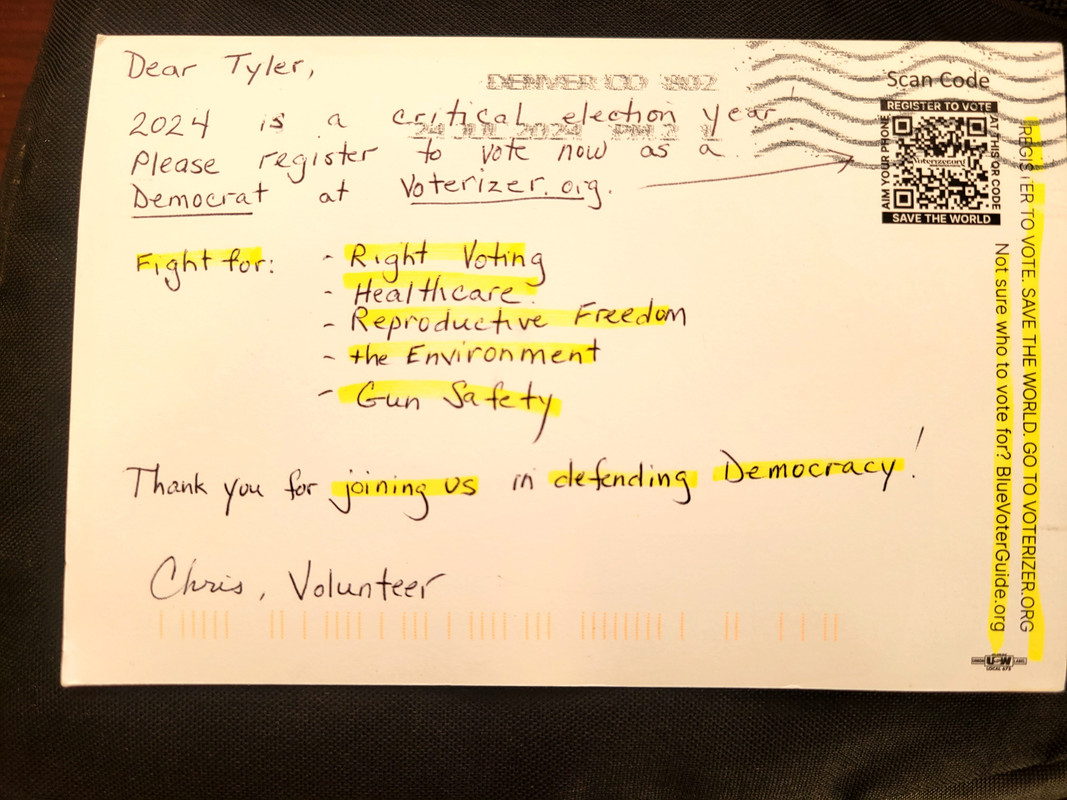 Dear Tyler,
DENVER CO 802
2024 is a critical election year!
24 JUL 2024 PM 2
Please register to vote now as a
Democrat at Voterizer.org.
Fight for:
- Right Voting
- Healthcare.
- Reproductive Freedom
- the Environment
- Gun Safety
Thank you for joining us in defending Democracy!
Chris, Volunteer
Scan Code
REGISTER TO VOTE
AIM YOUR PHONE
AT THIS QR CODE
Voterizer.org
SAVE THE WORLD
REGISTER TO VOTE. SAVE THE WORLD. GO TO VOTERIZER.ORG
Not sure who to vote for? BlueVoterGuide.org